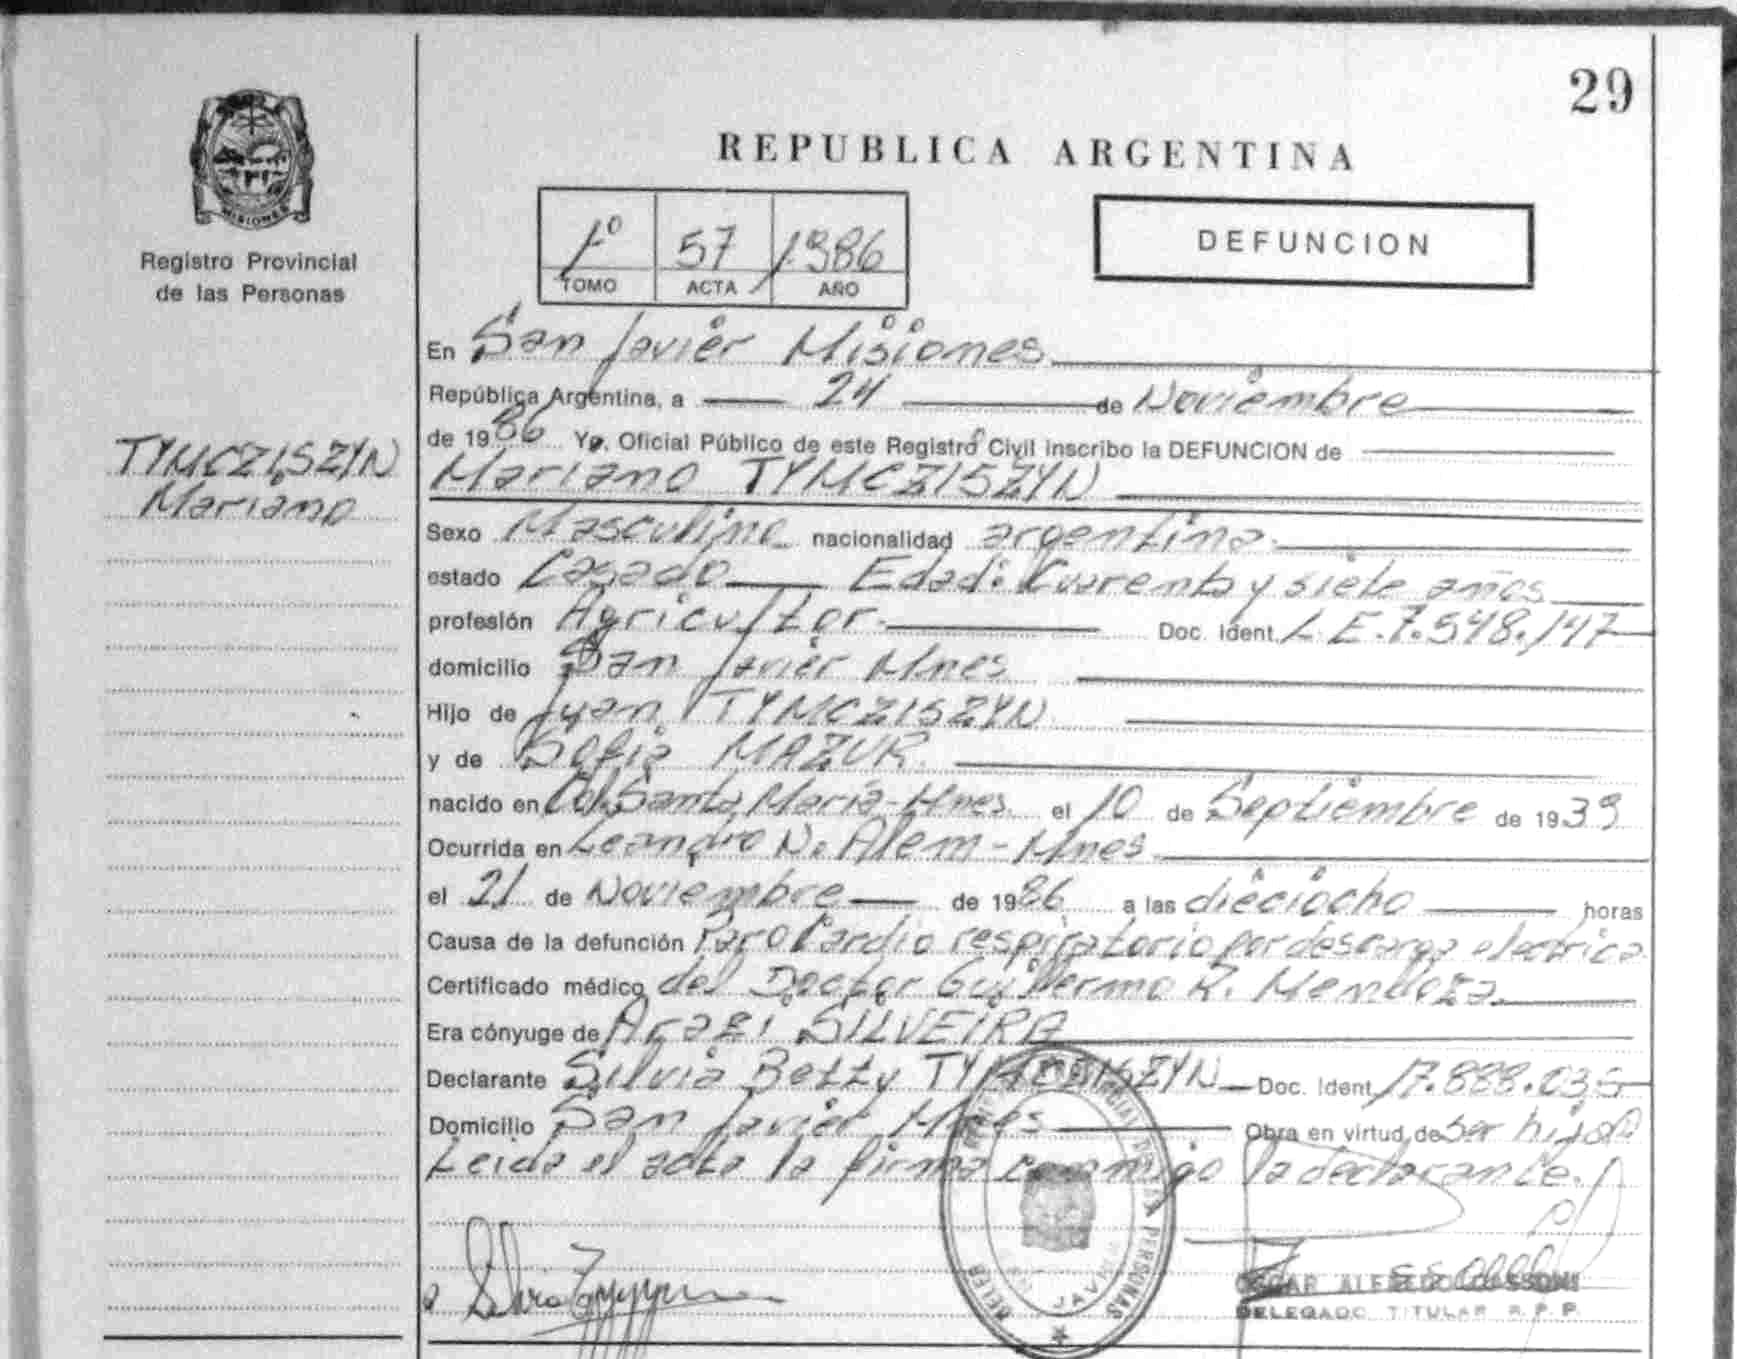 29
REPUBLICA ARGENTINA
MISIONES
Registro Provincial
de las Personas
1º 57 1986
TOMO ACTA AÑO
DEFUNCION
En San Javier Misiones
República Argentina, a 24 de Noviembre
de 1986 Yo, Oficial Público de este Registro Civil inscribo la DEFUNCION de
TYMCZISZYN
Mariano
Mariano TYMCZISZYN
Sexo Masculino nacionalidad argentina
estado Casado Edad: Cuarenta y siete años
profesión Agricultor Doc. Ident. L.E. 7.548.147
domicilio San Javier Mnes
Hijo de Juan TYMCZISZYN
y de Sofia MAZUR.
nacido en Col. Santa Maria-Mnes. el 10 de Septiembre de 1939
Ocurrida en Leandro N. Alem-Mnes
el 21 de Noviembre de 1986 a las dieciocho horas
Causa de la defunción Paro Cardio respiratorio por descarga electrica
Certificado médico del Doctor Guillermo R. Mendoza.
Era cónyuge de Arazi SILVEIRA
Declarante Silvia Betty TYMCZISZYN Doc. Ident. 17.888.035
Domicilio San Javier Mnes Obra en virtud de Ser hija
Leida el acta la firma conmigo la declarante.
DE LAS PERSONAS
JAVIER
OSCAR ALFREDO
DELEGADO TITULAR R.P.P.